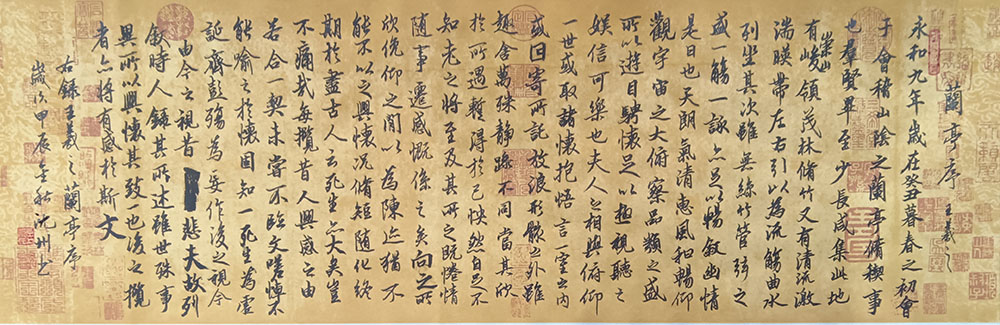 蘭亭序 王羲之
永和九年歲在癸丑暮春之初會
于會稽山陰之蘭亭脩稧事
也羣賢畢至少長咸集此地
有崇山峻領茂林脩竹又有清流激
湍暎帶左右引以為流觴曲水
列坐其次雖無絲竹管弦之
盛一觴一詠亦足以暢敘幽情
是日也天朗氣清惠風和暢仰
觀宇宙之大俯察品類之盛
所以遊目騁懷足以極視聽之
娛信可樂也夫人之相與俯仰
一世或取諸懷抱悟言一室之內
或因寄所託放浪形骸之外雖
趣舍萬殊靜躁不同當其欣
於所遇暫得於己怏然自足不
知老之將至及其所之既惓情
隨事遷感慨係之矣向之所
欣俛仰之間以為陳迹猶不
能不以之興懷況脩短隨化終
期於盡古人云死生亦大矣豈
不痛哉每攬昔人興感之由
若合一契未嘗不臨文嗟悼不
能喻之於懷固知一死生為虛
誕齊彭殤為妄作後之視今
由今之視昔 悲夫故列
敘時人錄其所述雖世殊事
異所以興懷其致一也後之攬
者亦將有感於斯文
右錄王羲之蘭亭序
歲次甲辰金秋沈州書